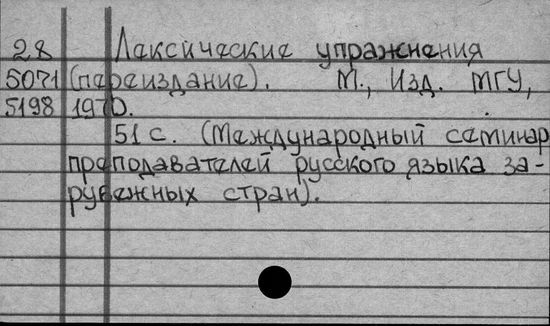 28 Лексические упражнения
5071 (переиздание). М., Изд. МГУ,
5198 1970.
51 с. (Международный семинар
преподавателей русского языка за-
рубежных стран).